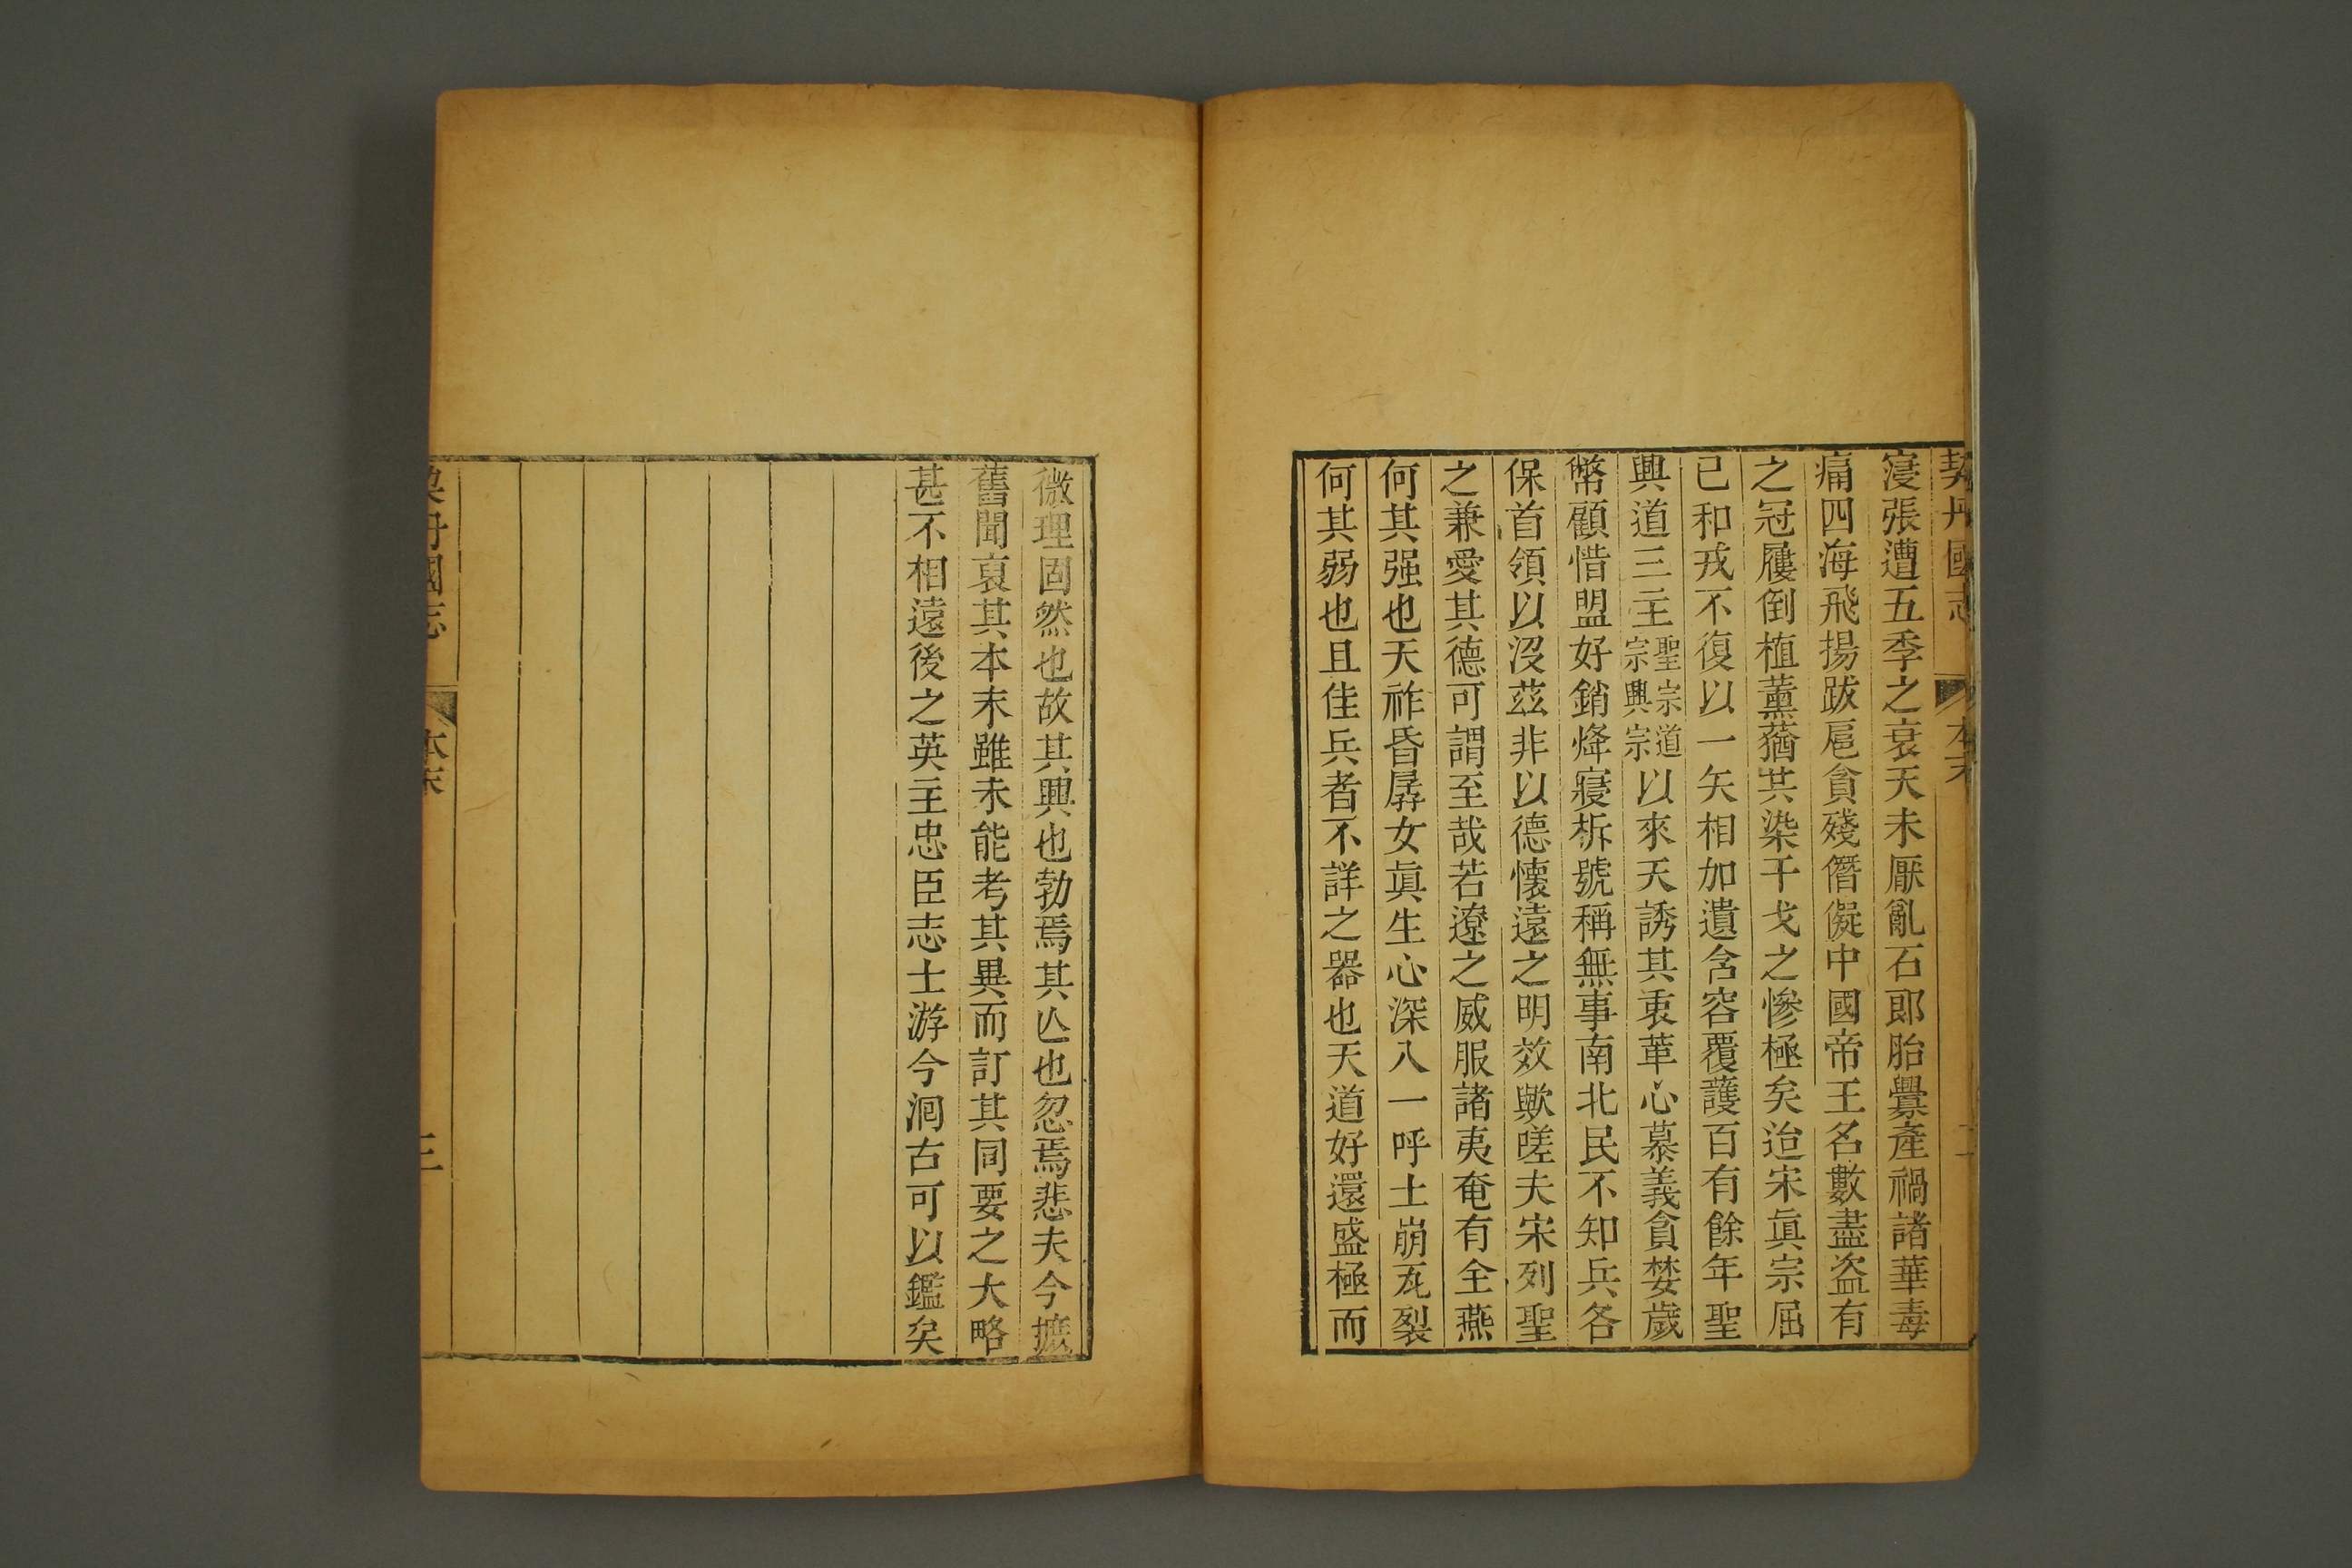 契丹國志 本末 二
寖張遭五季之衰天未厭亂石郎胎釁產禍諸華毒
痡四海飛揚跋扈貪殘僭儗中國帝王名數盡盜有
之冠屨倒植薰蕕共染干戈之慘極矣迨宋眞宗屈
己和戎不復以一矢相加遺含容覆護百有餘年聖
興道三主聖宗道宗興宗以來天誘其衷革心慕義貪婪歲
幣顧惜盟好銷烽寢柝號稱無事南北民不知兵各
保首領以沒茲非以德懷遠之明效歟嗟夫宋列聖
之兼愛其德可謂至哉若遼之威服諸夷奄有全燕
何其强也天祚昏孱女眞生心深入一呼土崩瓦裂
何其弱也且佳兵者不詳之器也天道好還盛極而
微理固然也故其興也勃焉其亾也忽焉悲夫今摭
舊聞裒其本末雖未能考其異而訂其同要之大略
甚不相遠後之英主忠臣志士游今洞古可以鑑矣
契丹國志 本末 三